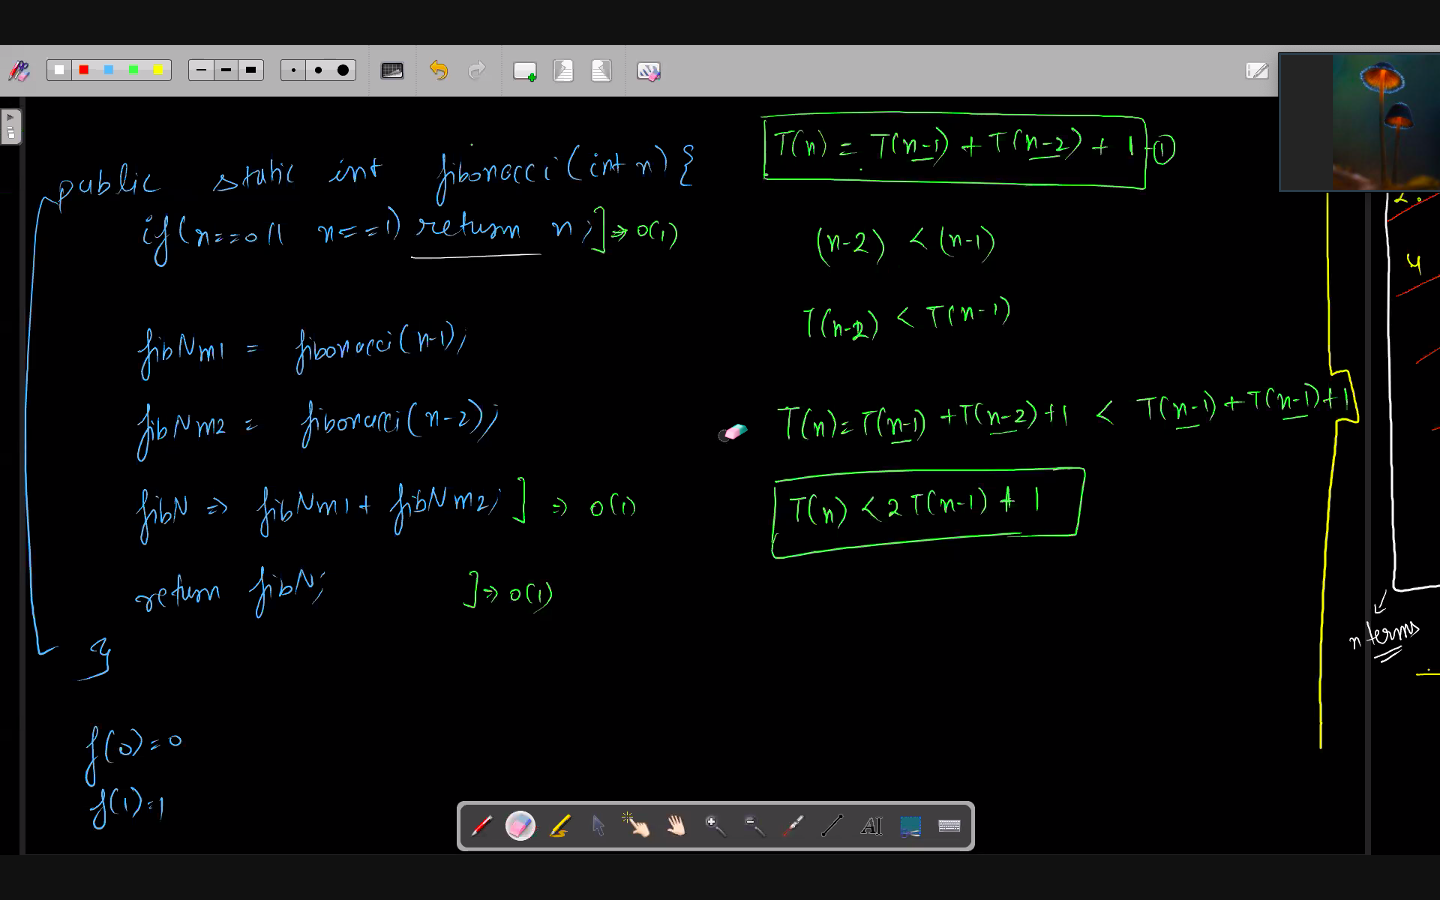 public static int fibonacci(int n){
if(n==0 || n==1) return n; ] => O(1)
fibNm1 = fibonacci(n-1);
fibNm2 = fibonacci(n-2);
fibN => fibNm1 + fibNm2; ] => O(1)
return fibN; ] => O(1)
}
f(0)=0
f(1)=1
T(n) = T(n-1) + T(n-2) + 1 - ①
(n-2) < (n-1)
T(n-2) < T(n-1)
T(n) = T(n-1) + T(n-2) + 1 < T(n-1) + T(n-1) + 1
T(n) < 2 T(n-1) + 1
2.
4
n terms
AI